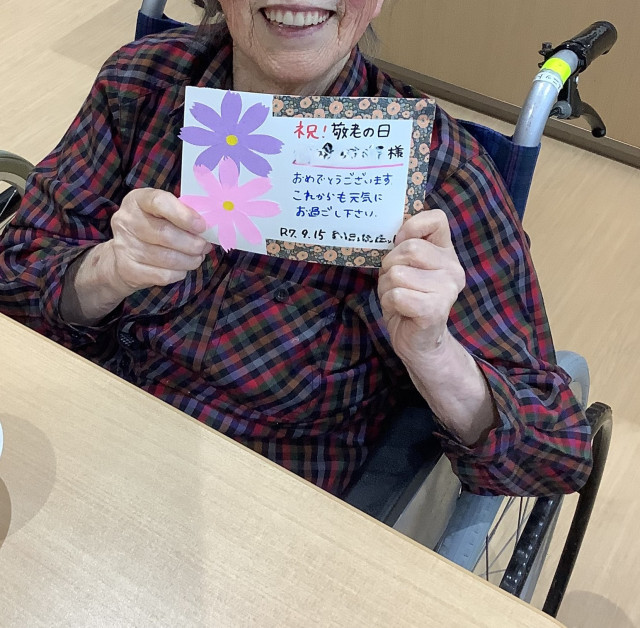 祝！敬老の日
様
おめでとうございます
これからも元気に
お過ごし下さい。
R7.9.15